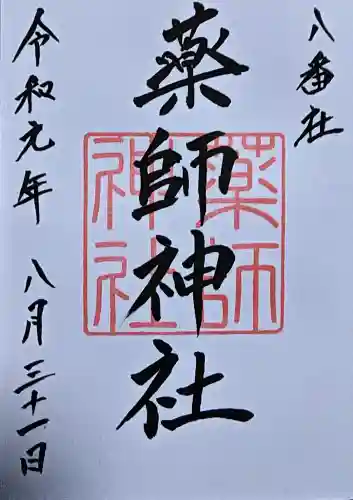 八番社
薬師神社
令和元年 八月三十一日
薬師
神社